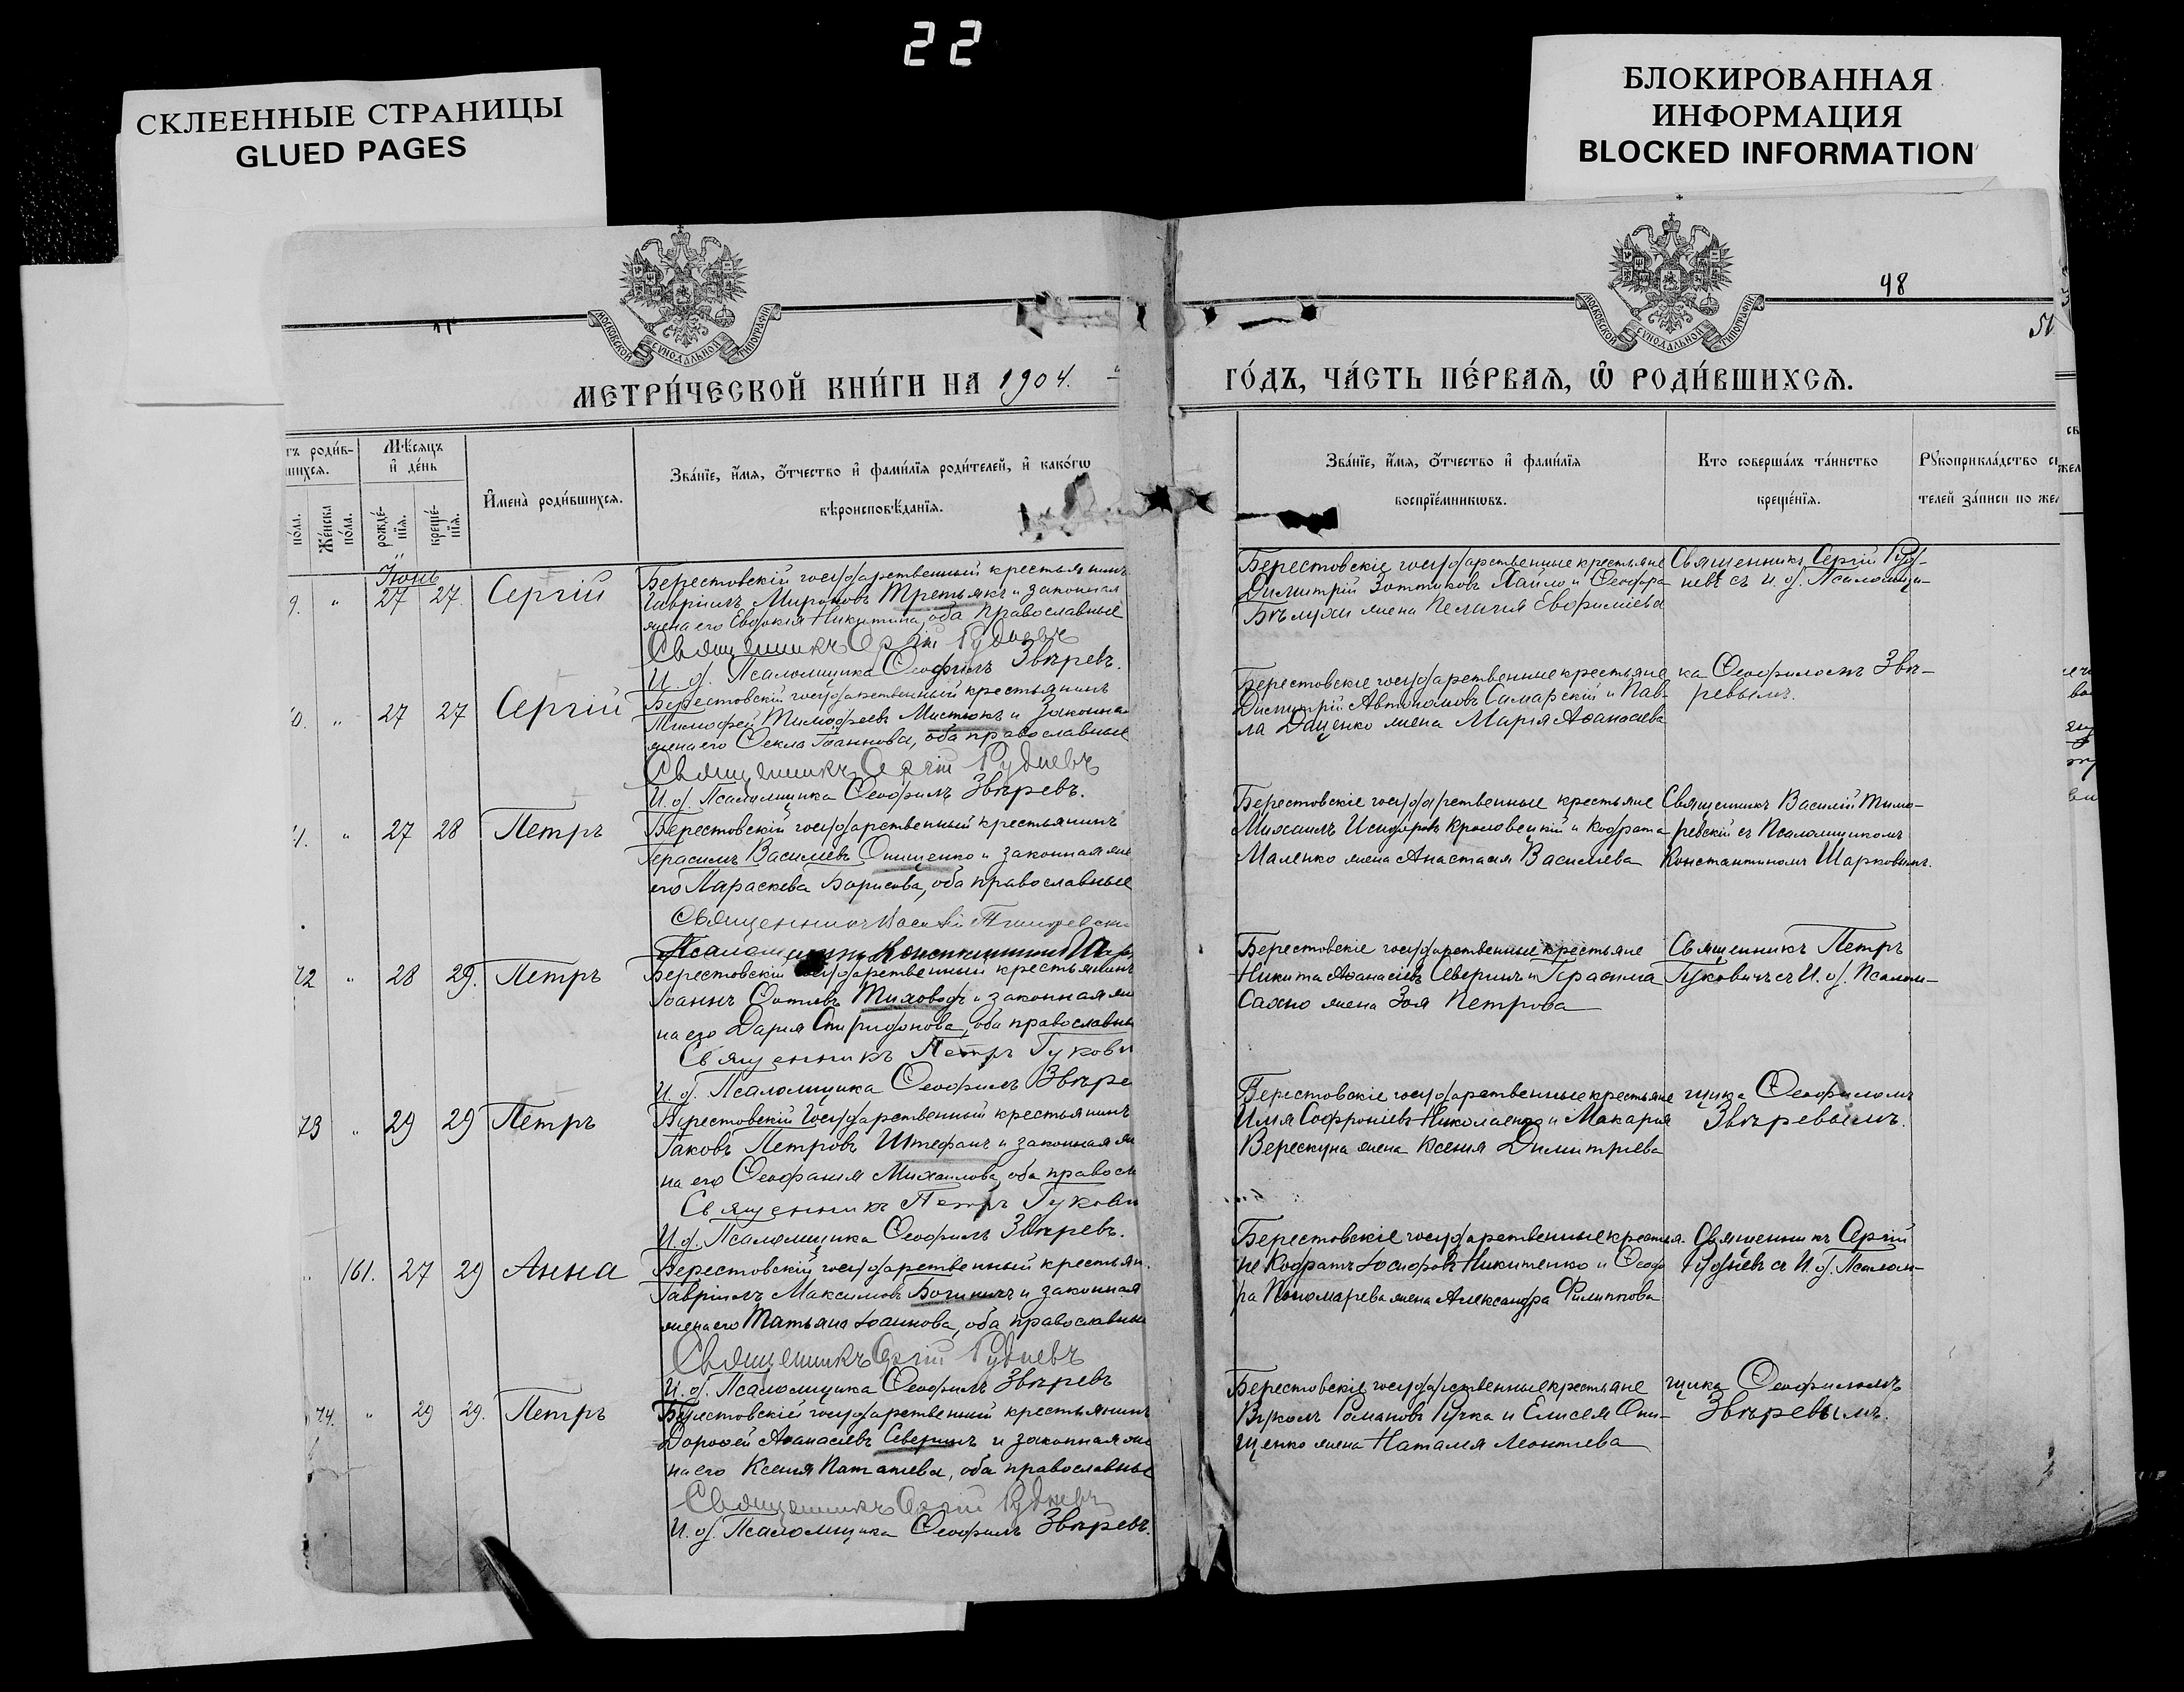 22
СКЛЕЕННЫЕ СТРАНИЦЫ
GLUED PAGES
БЛОКИРОВАННАЯ
ИНФОРМАЦИЯ
BLOCKED INFORMATION
48
51
МОСКОВСКОЙ СУНОДАЛЬНОЙ ТИПОГРАФІИ
МОСКОВСКОЙ СУНОДАЛЬНОЙ ТИПОГРАФІИ
МЕТРИ́ЧЕСКОЙ КНИ́ГИ НА 1904.
ГО́ДЪ, ЧА́СТЬ ПЕ́РВАѦ, Ѡ҆ РОДИ́ВШИХСѦ.
тъ роди́в-
шихсѧ.
Мѣ́сѧцъ
и҆ де́нь
по́ла.
Же́нска
по́ла.
рожде́-
нїѧ.
креще́-
нїѧ.
И҆мена̀ роди́вшихсѧ.
Зва́нїе, и҆́мѧ, ѻ҆́тчество и҆ фами́лїѧ роди́телей, и҆ како́гѡ
вѣроисповѣ́данїѧ.
Зва́нїе, и҆́мѧ, ѻ҆́тчество и҆ фами́лїѧ
воспрїе́мникѡвъ.
Кто соверша́лъ та́инство
креще́нїѧ.
Рꙋкоприкла́дство
телей за́писи по
Іюнь
9. " 27 27. Сергій
Берестовскій государственный крестьянинъ
Гавріилъ Мироновъ Третьякъ и законная
жена его Евдокія Никитина, оба православные
Священникъ Сергій Рудневъ
И. д. Псаломщика Ѳеофилъ Звѣревъ.
Берестовскіе государственные крестьяне
Димитрій Зотиковъ Хайло и Ѳеодора
Бѣлухи жена Пелагія Евфиміева
Священникъ Сергій Руд-
невъ съ И. д. Псаломщи-
0. " 27 27 Сергій
Берестовскій государственный крестьянинъ
Тимофей Тимофеевъ Мистюкъ и законная
жена его Ѳекла Іоаннова, оба православные
Священникъ Сергій Рудневъ
И. д. Псаломщика Ѳеофилъ Звѣревъ.
Берестовскіе государственные крестьяне
Димитрій Автономовъ Самарскій и Пав-
ла Даценко жена Марія Аѳанасіева
ка Ѳеофиломъ Звѣ-
ревымъ.
1. " 27 28 Петръ
Берестовскій государственный крестьянинъ
Герасимъ Василіевъ Онищенко и законная же
его Параскева Борисова, оба православные
Священникъ
Псаломщикъ Константинъ
Берестовскіе государственные крестьяне
Михаилъ Исидоровъ и Кодрата
Маленко жена Анастасія Василіева
Священникъ Василій Тимо-
ревскій съ Псаломщикомъ
Константиномъ Шарковымъ.
72 " 28 29. Петръ
Берестовскій государственный крестьянинъ
Іоаннъ Тиховодъ и законная же
на его Дарія Спиридонова, оба православны
Священникъ Петръ Гукови
И. д. Псаломщика Ѳеофилъ Звѣре
Берестовскіе государственные крестьяне
Никита Аѳанасіевъ Северинъ и Герасима
Сахно жена Зоя Петрова
Священникъ Петръ
Гуковичъ съ И. д. Псалом-
73 " 29 29 Петръ
Берестовскій Государственный крестьянинъ
Іаковъ Петровъ Штефанъ и законная же
на его Ѳеофанія Михаилова, оба правосл
Священникъ Петръ Гукови
И. д. Псаломщика Ѳеофилъ Звѣревъ.
Берестовскіе государственные крестьяне
Илія Софроніевъ Николаенко и Макарія
Верескуна жена Ксенія Димитріева
щика Ѳеофиломъ
Звѣревымъ.
161. 27 29 Анна
Берестовскій государственный крестьян.
Гавріилъ Максимовъ и законная
жена его Татьяна Іоаннова, оба православны
Священникъ Сергій Рудневъ
И. д. Псаломщика Ѳеофилъ Звѣревъ
Берестовскіе государственные крестья-
не Кодратъ Іосифовъ Никитенко и Ѳеодо
ра Пономарева жена Александра Филиппова
Священникъ Сергій
Рудневъ съ И. д. Псалом-
74. " 29 29. Петръ
Берестовскій государственный крестьянинъ
Дороѳей Аѳанасіевъ Северинъ и законная же
на его Ксенія, оба православные
Священникъ Сергій Рудневъ
И. д. Псаломщика Ѳеофилъ Звѣревъ.
Берестовскіе государственные крестьяне
Вуколъ Романовъ Ручка и Елисея Они-
щенко жена Наталія Леонтіева
щика Ѳеофиломъ
Звѣревымъ.